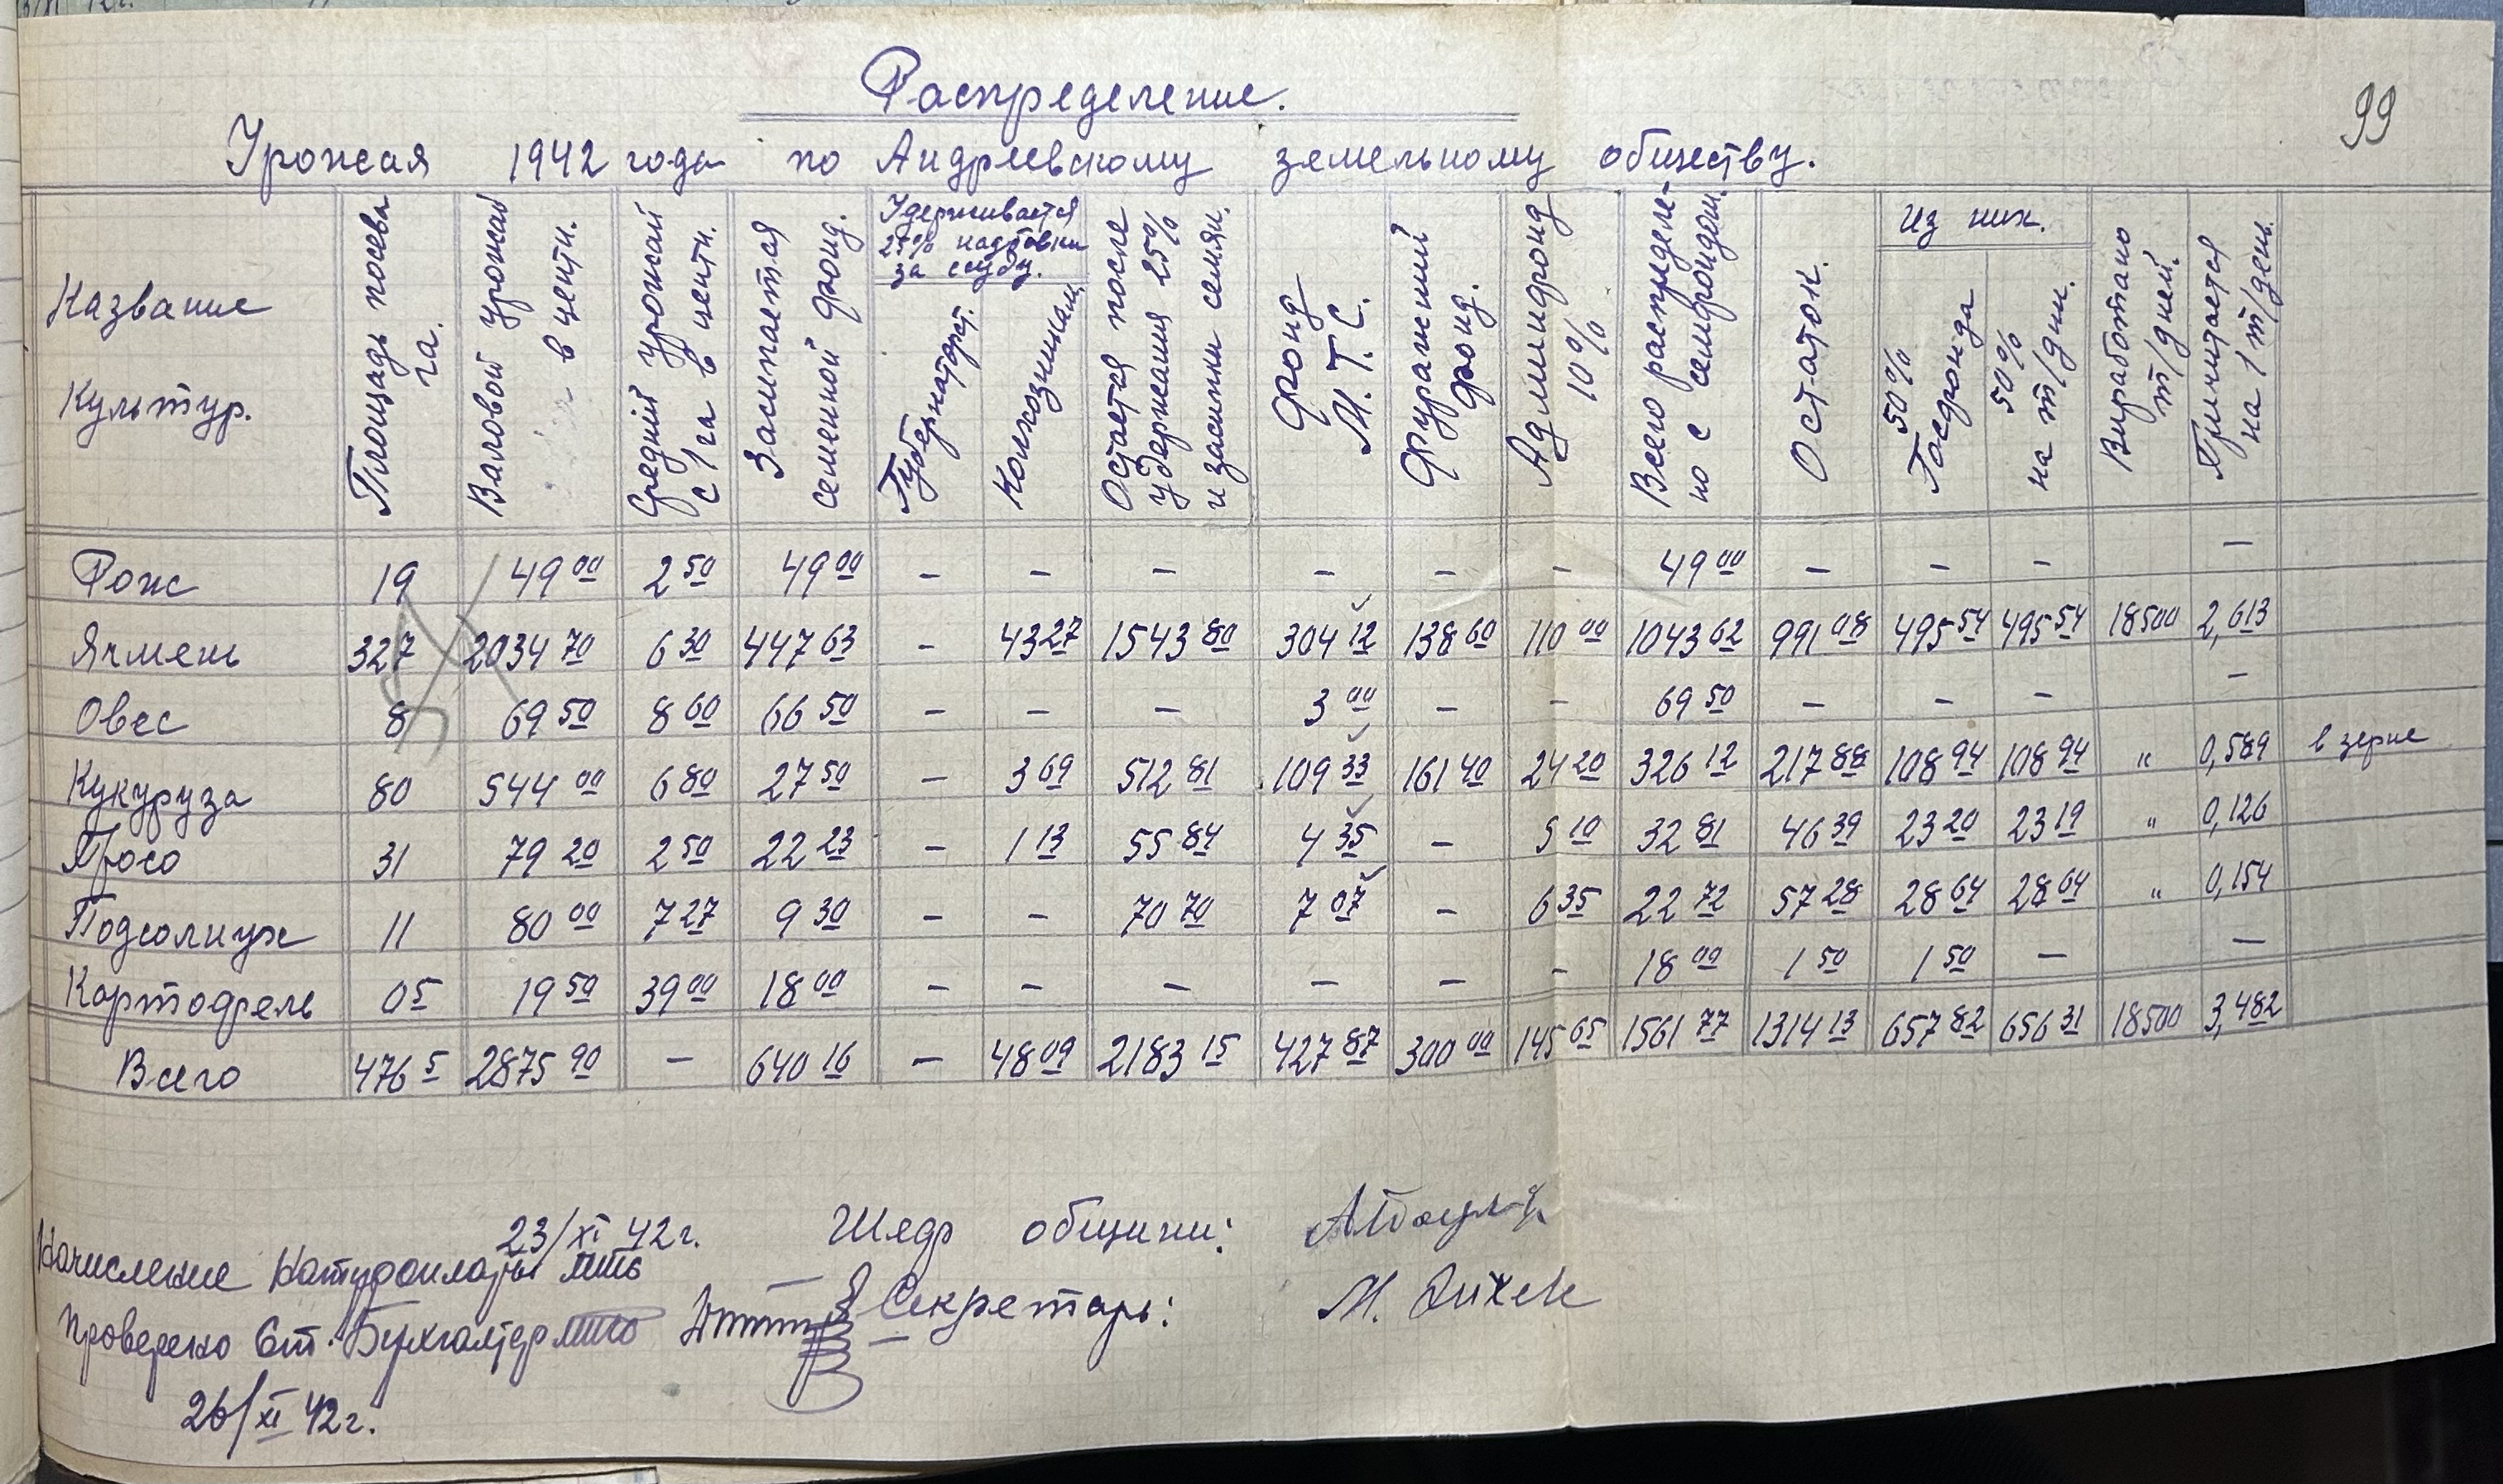 99
Распределение.
Урожая 1942 года по Андреевскому земельному обществу.
Название Культур.
Площадь посева га.
Валовой урожай в центн.
Средний урожай с 1 га в центн.
Засыпается семенной фонд.
Удерживается 25% надбавки за ссуду.
Губернаторст.
Колхозникам
Остается после удержания 25% и засыпки семян.
Фонд М.Т.С.
Фуражний фонд.
Админфонд 10%
Всего распределено с семфондом.
Остаток.
Из них.
50% Госфонда
50% на т/дни.
Виработано т/дней.
Причитается на 1 т/день.
Рожь 19 49 00 2 50 49 00 – – – – – – 49 00 – – – –
Ячмень 327 2034 70 6 30 447 63 – 43 27 1543 80 304 12 138 60 110 00 1043 62 991 08 495 54 495 54 18500 2,613
Овес 8 69 50 8 60 66 50 – – – 3 00 – – 69 50 – – – –
Кукуруза 80 544 00 6 80 27 50 – 3 69 512 81 109 33 161 40 24 20 326 12 217 88 108 94 108 94 " 0,589 в зерне
Просо 31 79 20 2 50 22 23 – 1 13 55 84 4 35 – 5 10 32 81 46 39 23 20 23 19 " 0,126
Подсолнух 11 80 00 7 27 9 30 – – 70 70 7 07 – 6 35 22 72 57 28 28 64 28 64 " 0,154
Картофель 0 5 19 50 39 00 18 00 – – – – – – 18 00 1 50 1 50 – –
Всего 476 5 2875 90 – 640 16 – 48 09 2183 15 427 87 300 00 145 65 1561 77 1314 13 657 82 656 31 18500 3,482
23/XI 42 г. Шеф общини:
Начисление Натуроплаты МТС
Проверено Ст. Бухгалтер Секретарь: М.
26/XI 42 г.